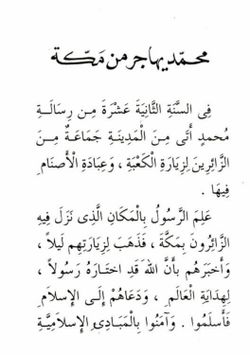 محمّد يهاجر من مَكّة
فِى السَّنَةِ الثَّانِيَةَ عَشْرَةَ مِن رِسَالَــةِ
مُحمدٍ أَتَى مِنَ الْمَدِينَةِ جَمَاعَةٌ مِــنَ
الزَّائِرِينَ لِزِيَارَةِ الْكَعْبَةِ ، وَعِبَادَةِ الأَصْنَامِ
فِيهَا .
عَلِمَ الرَّسُولُ بِالْمَكَانِ الَّذِى نَزَلَ فِيهِ
الزَّائِرُونَ بِمَكَّةَ ، فَذَهَبَ لِزِيَارَتِهِم لَيلاً ،
وَأَخبَرَهُم بِأَنَّ اللهَ قَدِ اختَارَهُ رَسُولاً ،
لِهِدَايَةِ الْعَالَمِ ، وَدَعَاهُمْ إلَى الإسْلاَمِ
فَأَسلَمُوا . وَآمَنُوا بِالْمَبَادِئِ الإسْلاَمِيَّةِ